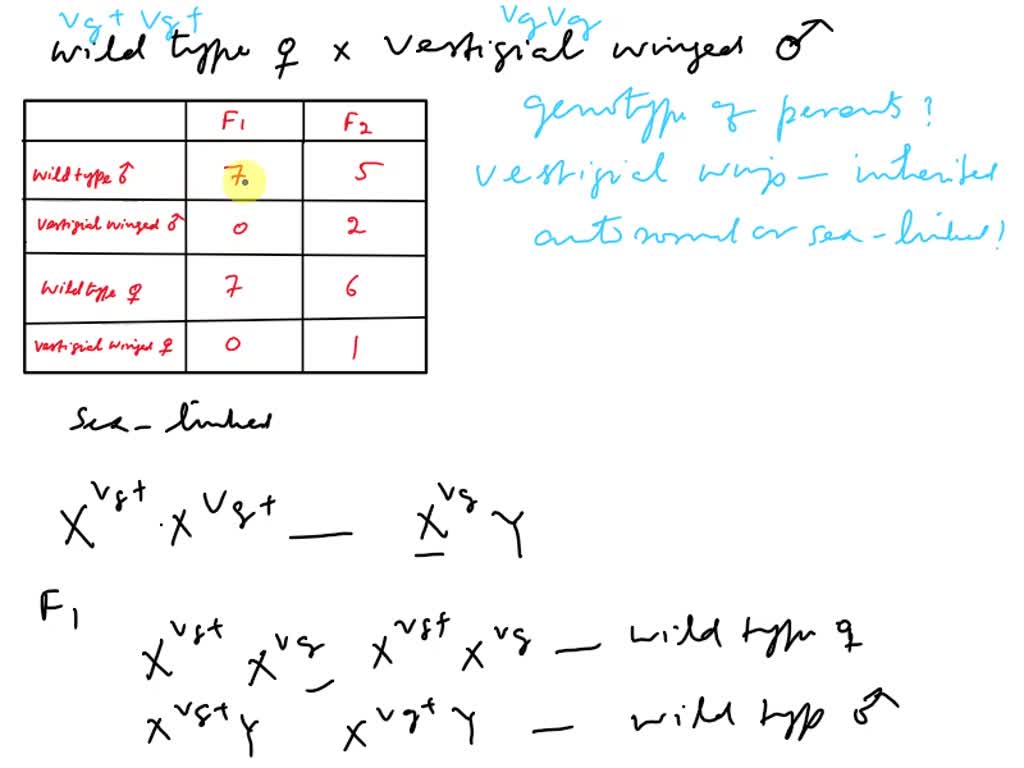 vg+ vg+ vgvg
wild type ♀ x vestigial winged ♂
genotype of perents?
vestigial wings - inherited
autosomal or sex-linked?
F1 F2
wild type ♂ 7 5
vestigial winged ♂ 0 2
wild type ♀ 7 6
vestigial winged ♀ 0 1
sex-linked
X^vg+ · X^vg+ — X^vg Y
F1
X^vg+ X^vg X^vg+ X^vg — wild type ♀
X^vg+ Y X^vg+ Y — wild typ ♂